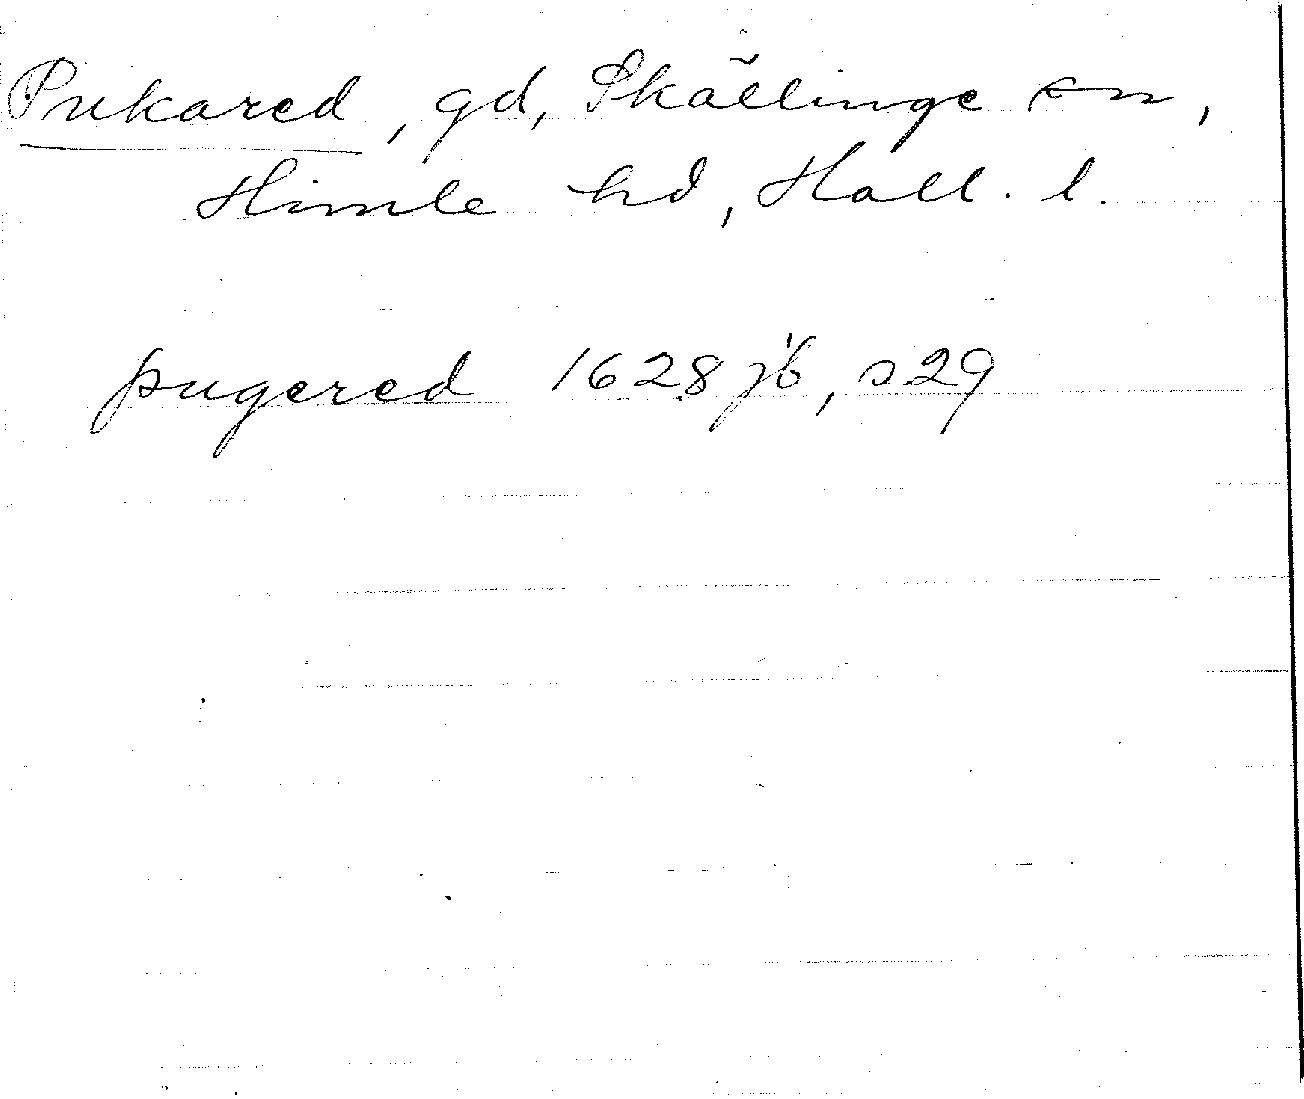 Pukared, gd, Skällinge sn,
Himle hd, Hall. l.
pugered 1628 jb, s 29